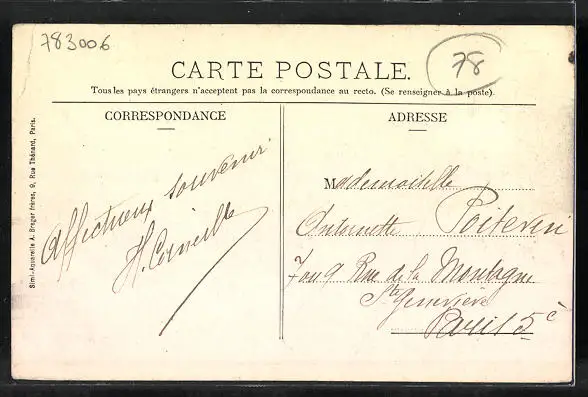 783006
78
CARTE POSTALE.
Tous les pays étrangers n'acceptent pas la correspondance au recto. (Se renseigner à la poste).
CORRESPONDANCE
ADRESSE
Simili-Aquarelle A. Breger frères, 9, Rue Thénard, Paris.
Affectueux souvenir
H. Corneille
Mademoiselle
Antoinette Poitevin
7 ou 9 Rue de la Montagne
Ste Geneviève
Paris 5e